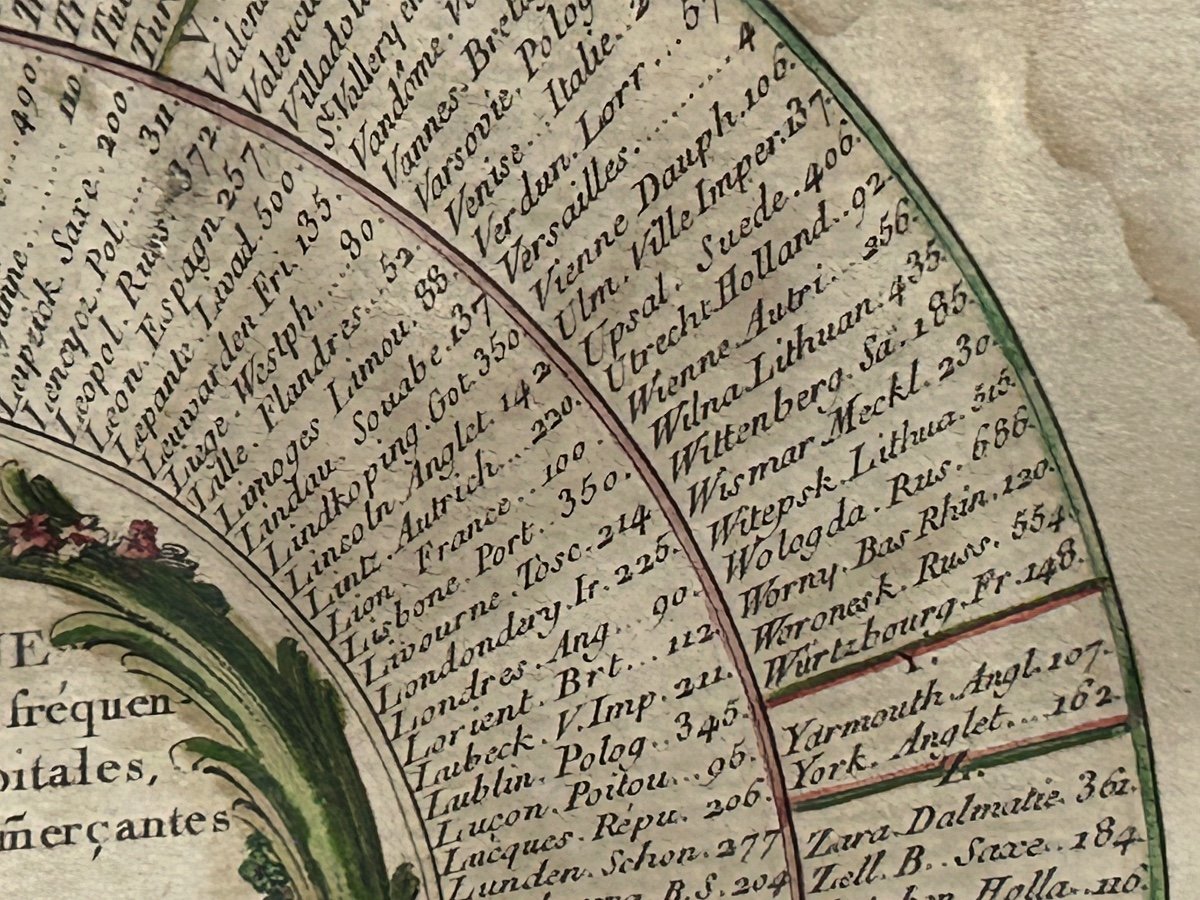 490.
110.
Leypziok Saxe. 200.
Lencyez Pol..... 311.
Leopol. Russ. 372.
Leon. Espagn. 257.
Lepante. Livad. 500.
Leuwarden Fri. 135.
Liege. Westph.... 80.
Lille. Flandres... 52.
Limoges Limou. 88.
Lindau. Souabe. 137
Lindkoping. Got. 350.
Lincoln. Anglet. 142
Lintz. Autrich... 220.
Lion. France... 100.
Lisbone. Port.. 350.
Livourne. Tosc. 214
Londondery. Ir. 225.
Londres. Ang... 90.
Lorient. Brt... 112.
Lubeck. V. Imp. 211.
Lublin. Polog.. 345.
Luçon. Poitou... 95.
Lucques. Répu. 206.
Lunden. Schon. 277
R.S. 204
Villadol
St. Vallery en
Vandôme.
Vannes. Breta
Varsovie. Polog
Venise... Italie..
Verdun. Lorr... 57
Versailles.......... 4
Vienne Dauph. 106.
Ulm. Ville Imper. 137.
Upsal. Suede. 406.
Utrecht Holland.. 92.
Wienne. Autri... 256.
Wilna Lithuan. 435.
Wittenberg. Sa. 185.
Wismar Meckl. 230.
Witepsk. Lithua. 515.
Wologda. Rus. 686.
Worny. Bas Rhin. 120.
Woronesk. Russ. 554.
Würtzbourg. Fr. 148.
Y.
Yarmouth. Angl. 107.
York. Anglet... 162.
Z.
Zara Dalmatie. 361.
Zell. B.. Saxe.. 184.
Holla.. 110.
UE
fréquen-
pitales,
m̃erçantes